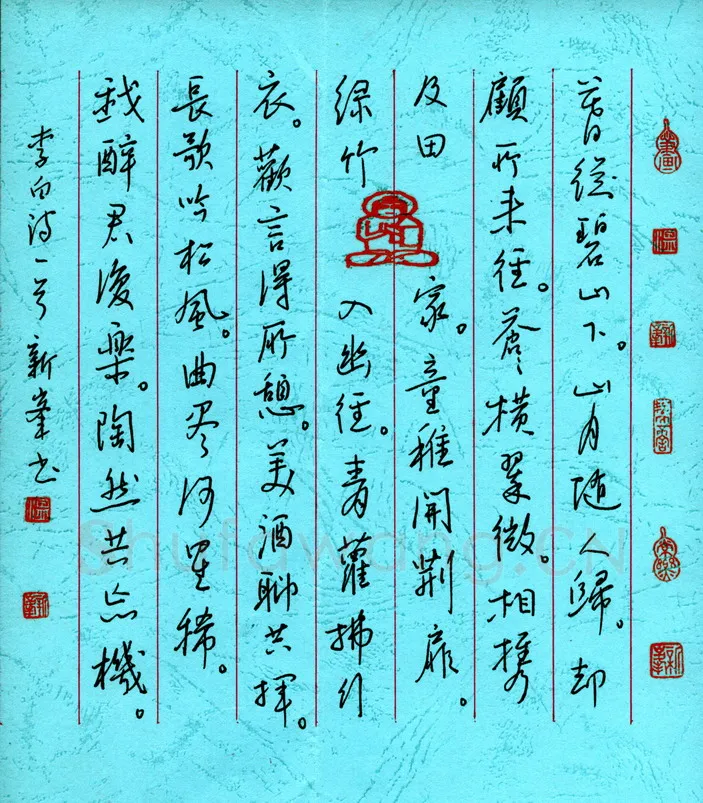 暮從碧山下。山月随人歸。却
顧所来徑。蒼々橫翠微。相携
及田家。童稚開荆扉。
绿竹入幽徑。青蘿拂行
衣。歡言得所憩。美酒聊共揮。
長歌吟松風。曲尽河星稀。
我醉君復樂。陶然共忘機。
李白诗一首 新峯书
Shufawang.CN